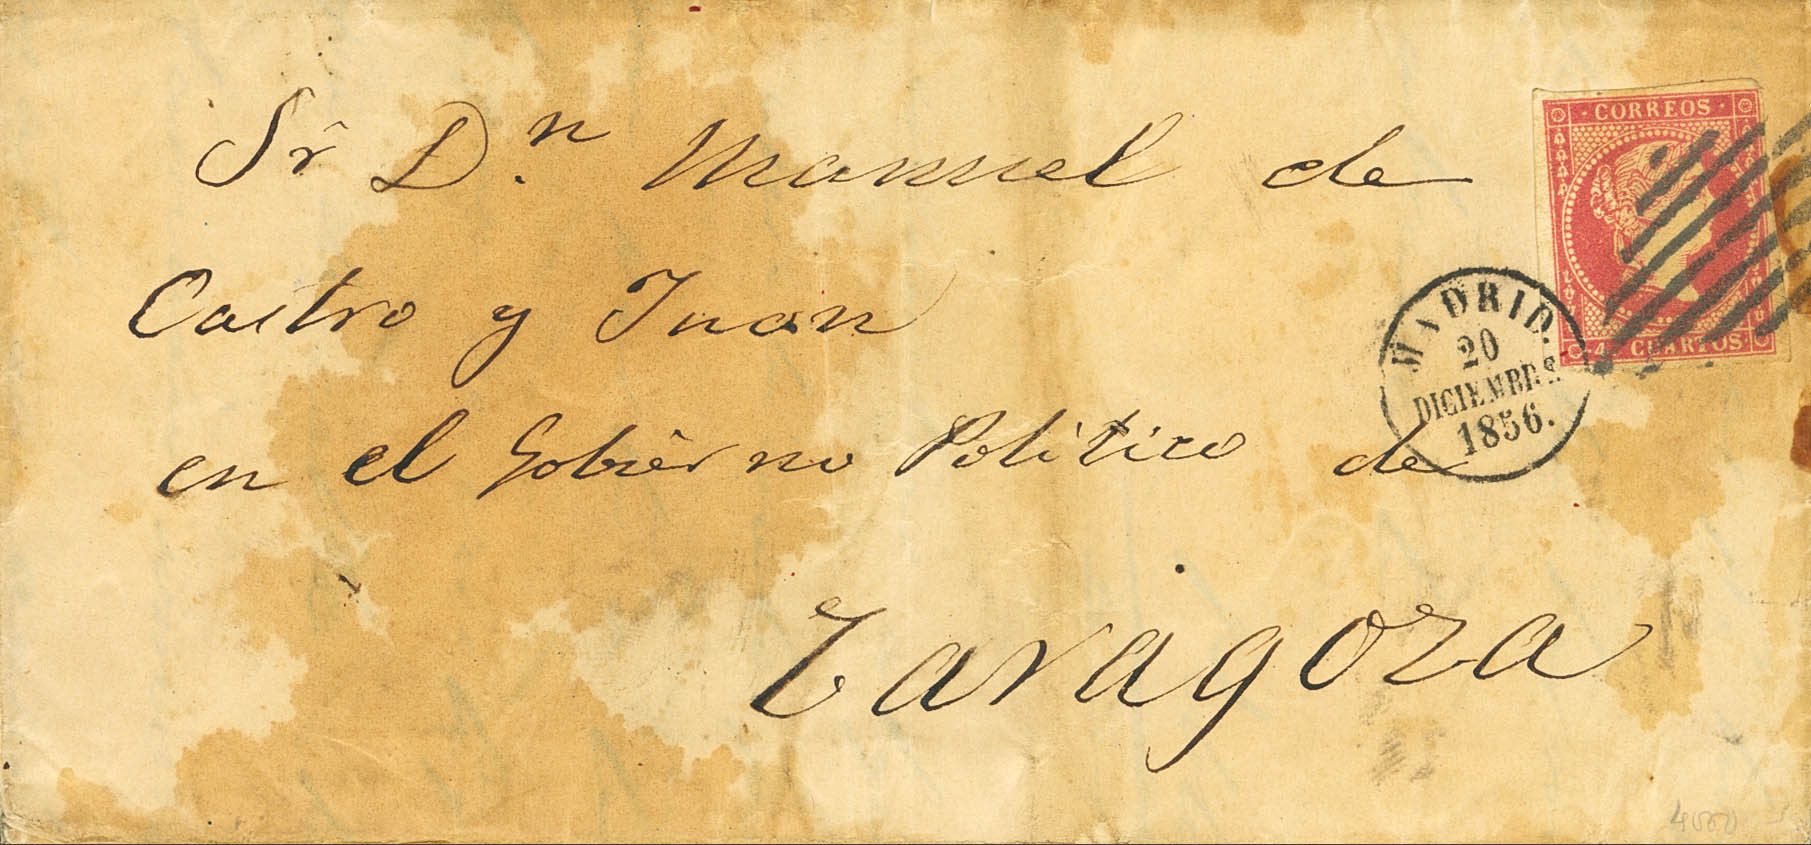 Sr. Dn. Manuel de
Castro y Juan
en el Gobierno Politico de
Zaragoza
· CORREOS ·
4 CUARTOS.
MADRID.
20
DICIEMBRE.
1856.